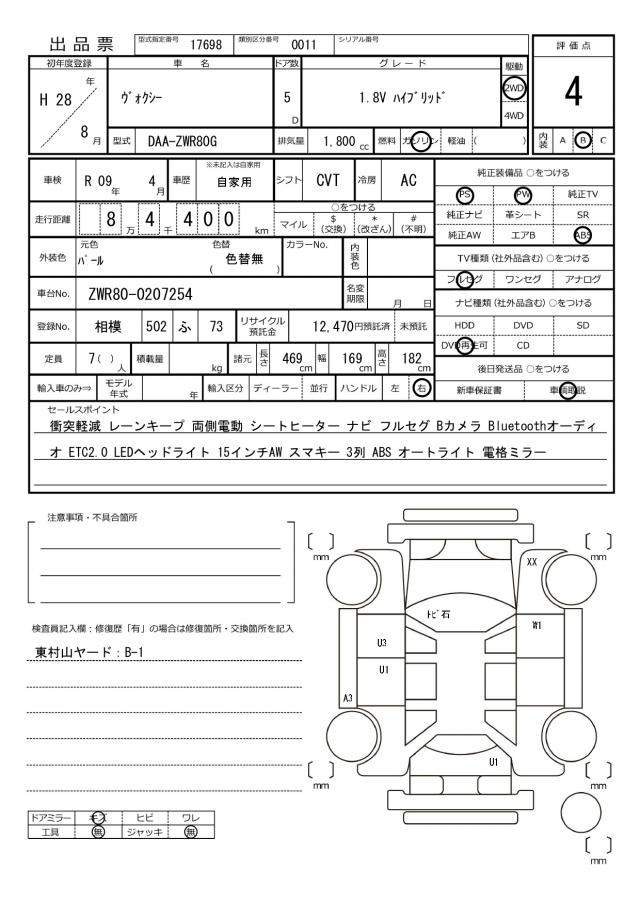 出品票 型式指定番号 17698 類別区分番号 0011 シリアル番号
評価点
4
初年度登録 車名 ドア数 グレード 駆動
H 28 年 8 月 ヴォクシー 5 D 1.8V ハイブリッド 2WD 4WD
型式 DAA-ZWR80G 排気量 1,800 cc 燃料 ガソリン 軽油 ( ) 内装 A B C
車検 R 09 年 4 月 車歴 ※未記入は自家用 自家用 シフト CVT 冷房 AC
走行距離 8 4 4 0 0 万 千 km
○をつける
マイル $ (交換) * (改ざん) # (不明)
外装色 元色 パール 色替 ( 色替無 ) カラーNo. 内装色
車台No. ZWR80-0207254 名変期限 月 日
登録No. 相模 502 ふ 73 リサイクル預託金 12,470円預託済 未預託
定員 7( ) 人 積載量 kg 諸元 長さ 469 cm 幅 169 cm 高さ 182 cm
輸入車のみ⇒ モデル年式 年 輸入区分 ディーラー 並行 ハンドル 左 右
純正装備品 ○をつける
PS PW 純正TV
純正ナビ 革シート SR
純正AW エアB ABS
TV種類 (社外品含む) ○をつける
フルセグ ワンセグ アナログ
ナビ種類 (社外品含む) ○をつける
HDD DVD SD
DVD再生可 CD
後日発送品 ○をつける
新車保証書 車輌取説
セールスポイント
衝突軽減 レーンキープ 両側電動 シートヒーター ナビ フルセグ Bカメラ Bluetoothオーディ
オ ETC2.0 LEDヘッドライト 15インチAW スマキー 3列 ABS オートライト 電格ミラー
注意事項・不具合箇所
検査員記入欄：修復歴「有」の場合は修復箇所・交換箇所を記入
東村山ヤード：B-1
ドアミラー キズ ヒビ ワレ
工具 無 ジャッキ 無
〔 〕 mm 〔 〕 mm
XX
トビ石
W1
U3
U1
A3
U1
〔 〕 mm 〔 〕 mm
〔 〕 mm